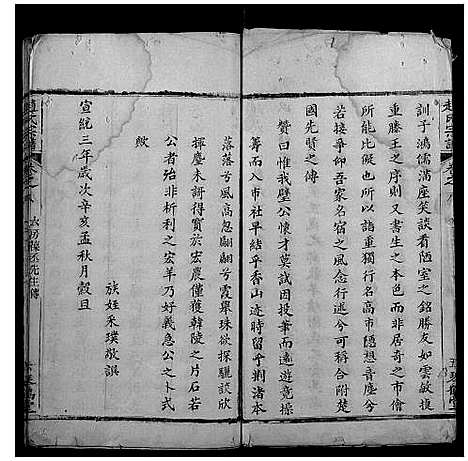 趙氏宗譜
訓子鴻儒滿座笑談看陋室之銘勝友如雲敏捷
重滕王之序則又書生之本色而非居奇之市儈
所能比儗也所以誼重獨行名高市隱想音塵兮
若接舉仰吾家名宿之風念行述兮可稱合附楚
國先賢之傳
贊曰惟我壁公懷才莫試因投筆而遠遊竟操
籌而入市社早結乎香山迹時留乎荆渚本
落落兮風高忽翩翩兮霞舉珠欲探驪談欣
揮麈未謌得寳於宏農僅獲韓陵之片石若
公者殆非析利之宏羊乃好義急公之卜式
歟
族姪采璞敬譔
宣統三年歲次辛亥孟秋月穀旦
趙氏宗譜
六房
先生傳